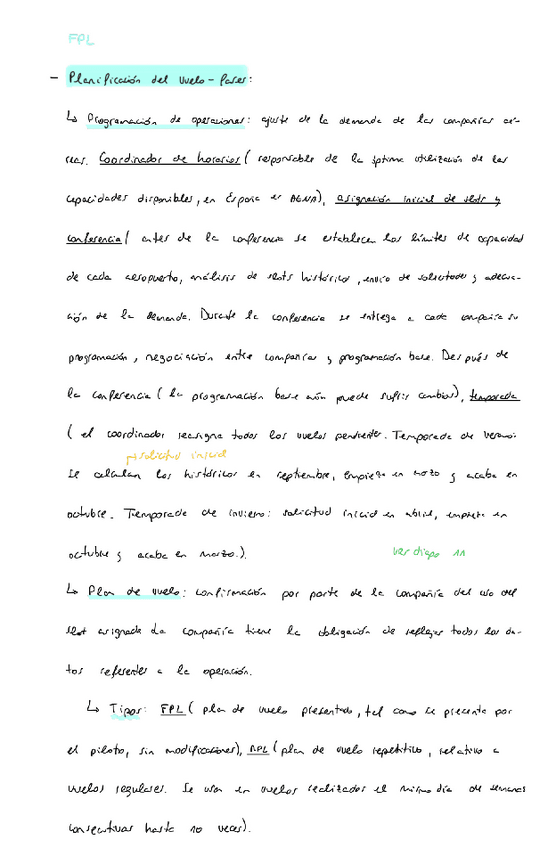 FPL
- Planificación del vuelo - Fases:
↳ Programación de operaciones: ajuste de la demanda de las compañías aé-
reas. Coordinador de horarios ( responsable de la óptima utilización de las
capacidades disponibles, en España es AENA), asignación inicial de slots y
conferencia ( antes de la conferencia se establecen los límites de capacidad
de cada aeropuerto, análisis de slots históricos, envío de solicitudes y adecua-
ción de la demanda. Durante la conferencia se entrega a cada compañía su
programación, negociación entre compañías y programación base. Después de
la conferencia ( la programación base aún puede sufrir cambios), temporada
( el coordinador reasigna todos los vuelos pendientes. Temporada de verano:
solicitud inicial
se calculan los históricos en septiembre, empieza en marzo y acaba en
octubre. Temporada de invierno: solicitud inicial en abril, empieza en
octubre y acaba en marzo.).
ver diapo 11
↳ Plan de vuelo: confirmación por parte de la compañía del uso del
slot asignado. La compañía tiene la obligación de reflejar todos los da-
tos referentes a la operación.
↳ Tipos: FPL ( plan de vuelo presentado, tal como se presenta por
el piloto, sin modificaciones), RPL ( plan de vuelo repetitivo, relativo a
vuelos regulares. Se usa en vuelos realizados el mismo día de semanas
consecutivas hasta 10 veces).